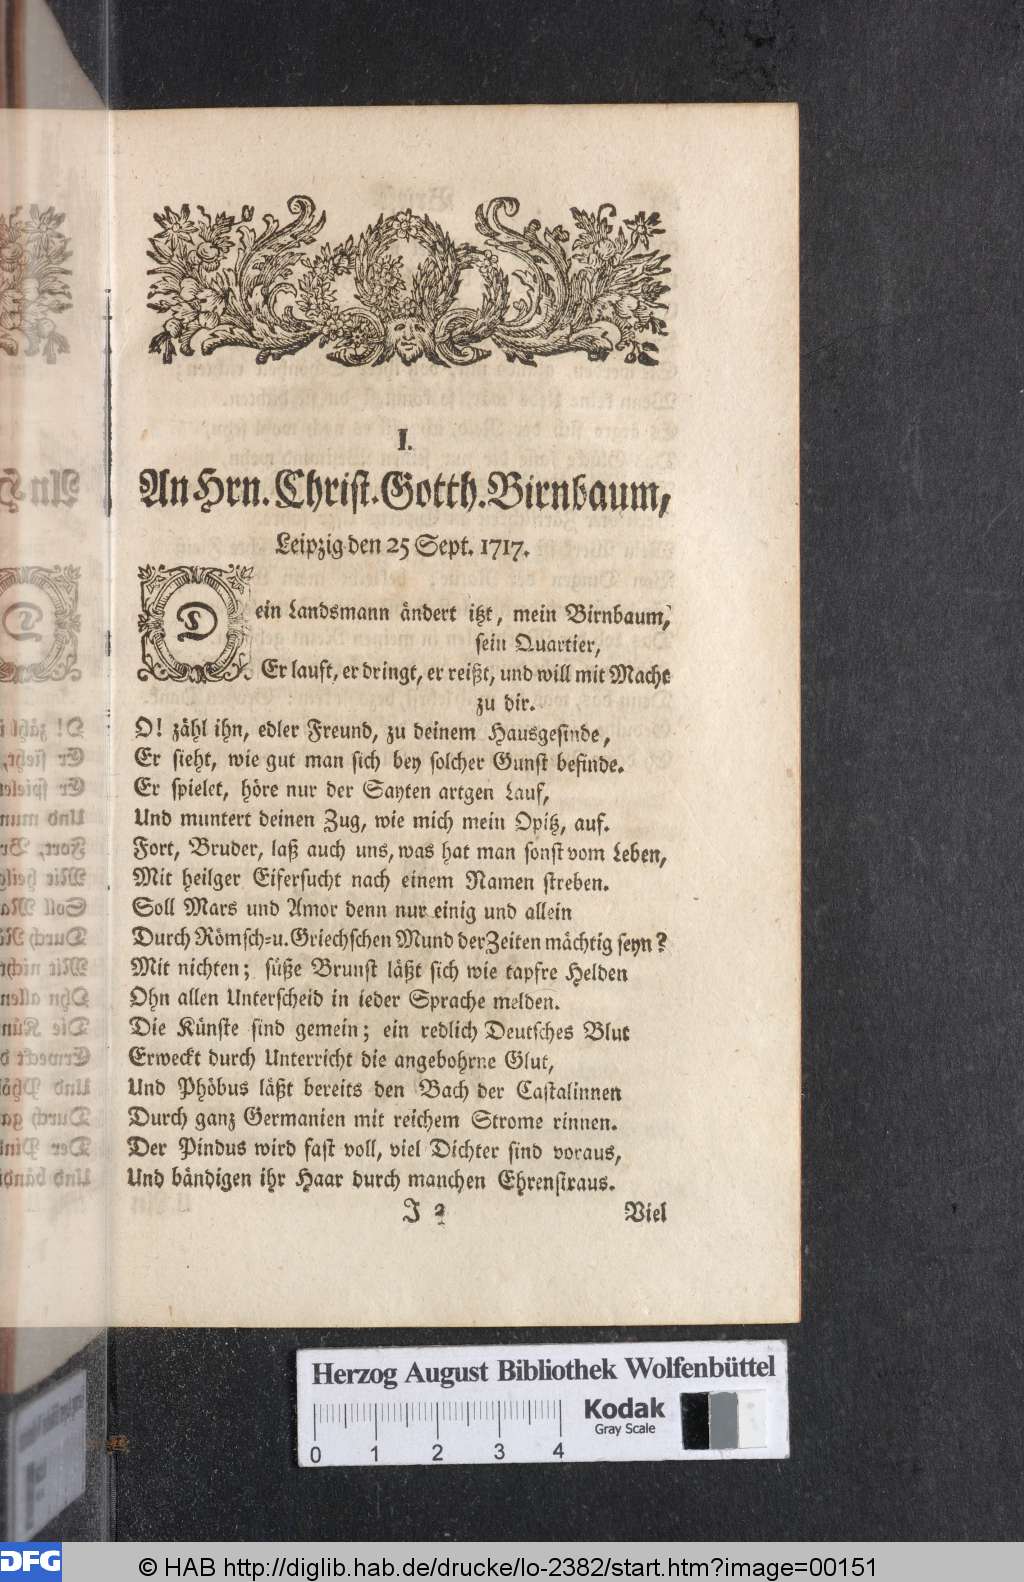 I.
An Hrn. Christ. Gotth. Birnbaum,
Leipzig den 25 Sept. 1717.
Dein Landsmann ändert itzt, mein Birnbaum,
sein Quartier,
Er lauft, er dringt, er reißt, und will mit Macht
zu dir.
O! zähl ihn, edler Freund, zu deinem Hausgesinde,
Er sieht, wie gut man sich bey solcher Gunst befinde.
Er spielet, höre nur der Sayten artgen Lauf,
Und muntert deinen Zug, wie mich mein Opitz, auf.
Fort, Bruder, laß auch uns, was hat man sonst vom Leben,
Mit heilger Eifersucht nach einem Namen streben.
Soll Mars und Amor denn nur einig und allein
Durch Römsch-u. Griechschen Mund der Zeiten mächtig seyn?
Mit nichten; süße Brunst läßt sich wie tapfre Helden
Ohn allen Unterscheid in ieder Sprache melden.
Die Künste sind gemein; ein redlich Deutsches Blut
Erweckt durch Unterricht die angebohrne Glut,
Und Phöbus läßt bereits den Bach der Castalinnen
Durch ganz Germanien mit reichem Strome rinnen.
Der Pindus wird fast voll, viel Dichter sind voraus,
Und bändigen ihr Haar durch manchen Ehrenstraus.
J 2 Viel
Herzog August Bibliothek Wolfenbüttel
Kodak
Gray Scale
0 1 2 3 4
DFG
© HAB http://diglib.hab.de/drucke/lo-2382/start.htm?image=00151